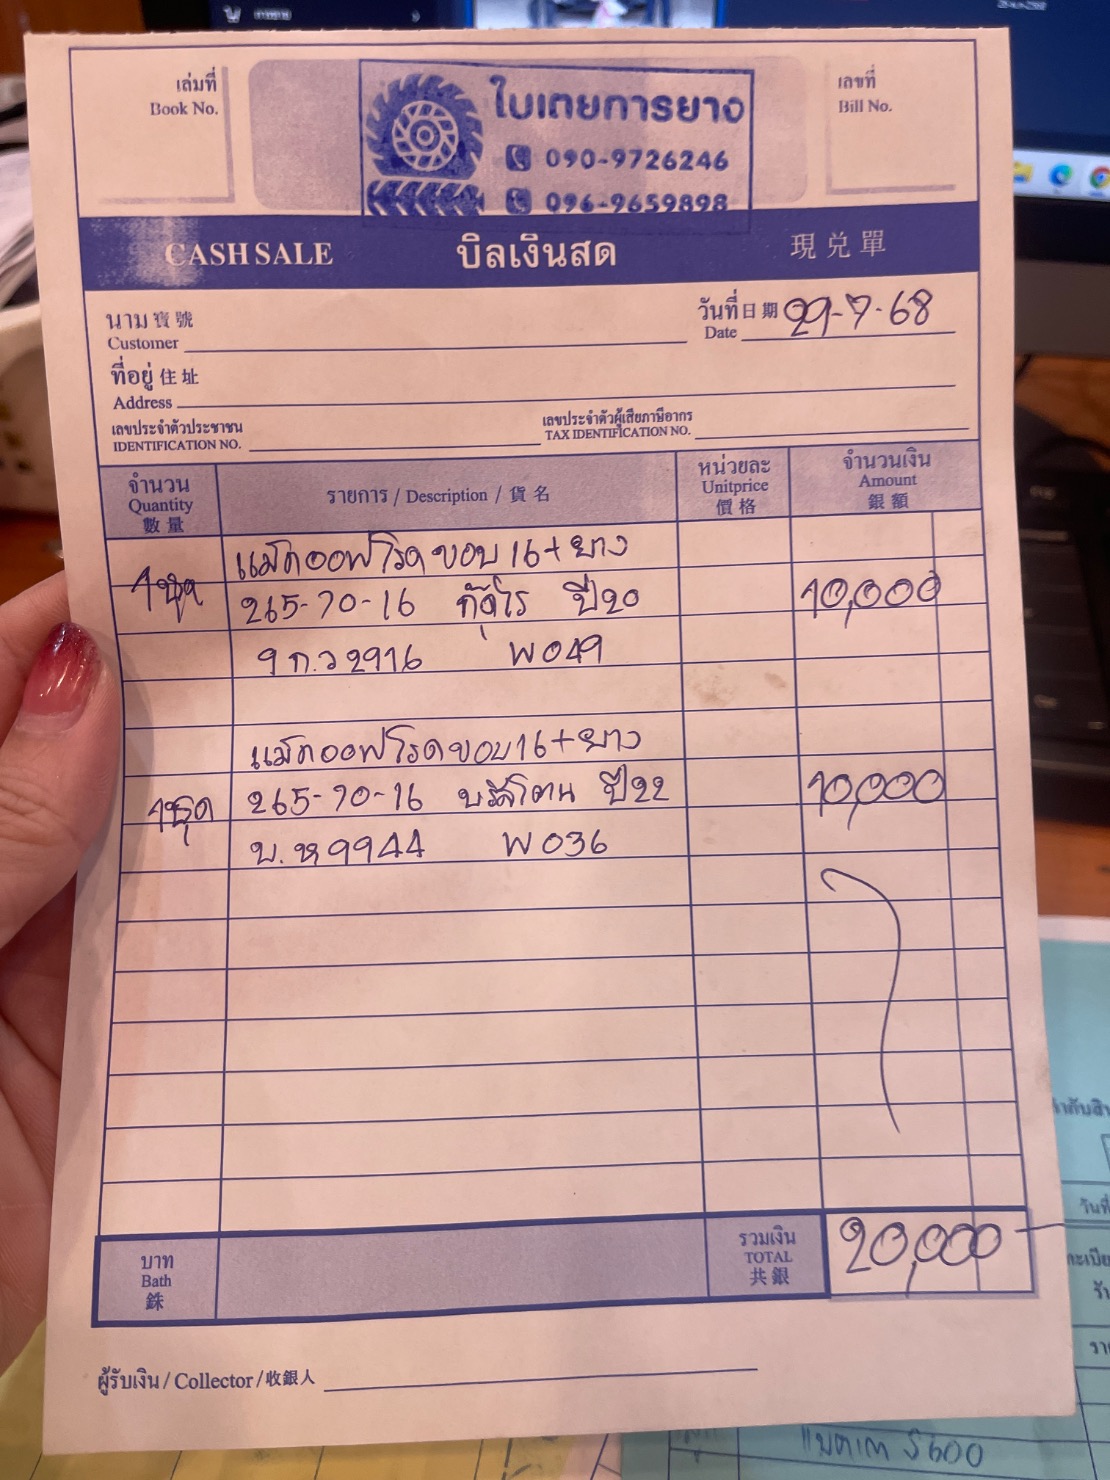 เล่มที่
Book No.
ใบเตยการยาง
090-9726246
096-9659898
เลขที่
Bill No.
CASH SALE บิลเงินสด 現兌單
นาม 寶號
Customer
วันที่ 日期 29-7-68
Date
ที่อยู่ 住址
Address
เลขประจำตัวประชาชน
IDENTIFICATION NO.
เลขประจำตัวผู้เสียภาษีอากร
TAX IDENTIFICATION NO.
จำนวน
Quantity
數量
รายการ / Description / 貨名
หน่วยละ
Unitprice
價格
จำนวนเงิน
Amount
銀額
แม็กออฟโรดขอบ 16 + ยาง
1ชุด 265-70-16 ปี20 10,000
9 ก.ว 2916 W049
แม็กออฟโรดขอบ 16 + ยาง
1ชุด 265-70-16 ปี22 10,000
บ.ห 9944 W036
บาท
Bath
銖
รวมเงิน
TOTAL
共銀
20,000
ผู้รับเงิน / Collector / 收銀人
วันที่
แบตเต S600